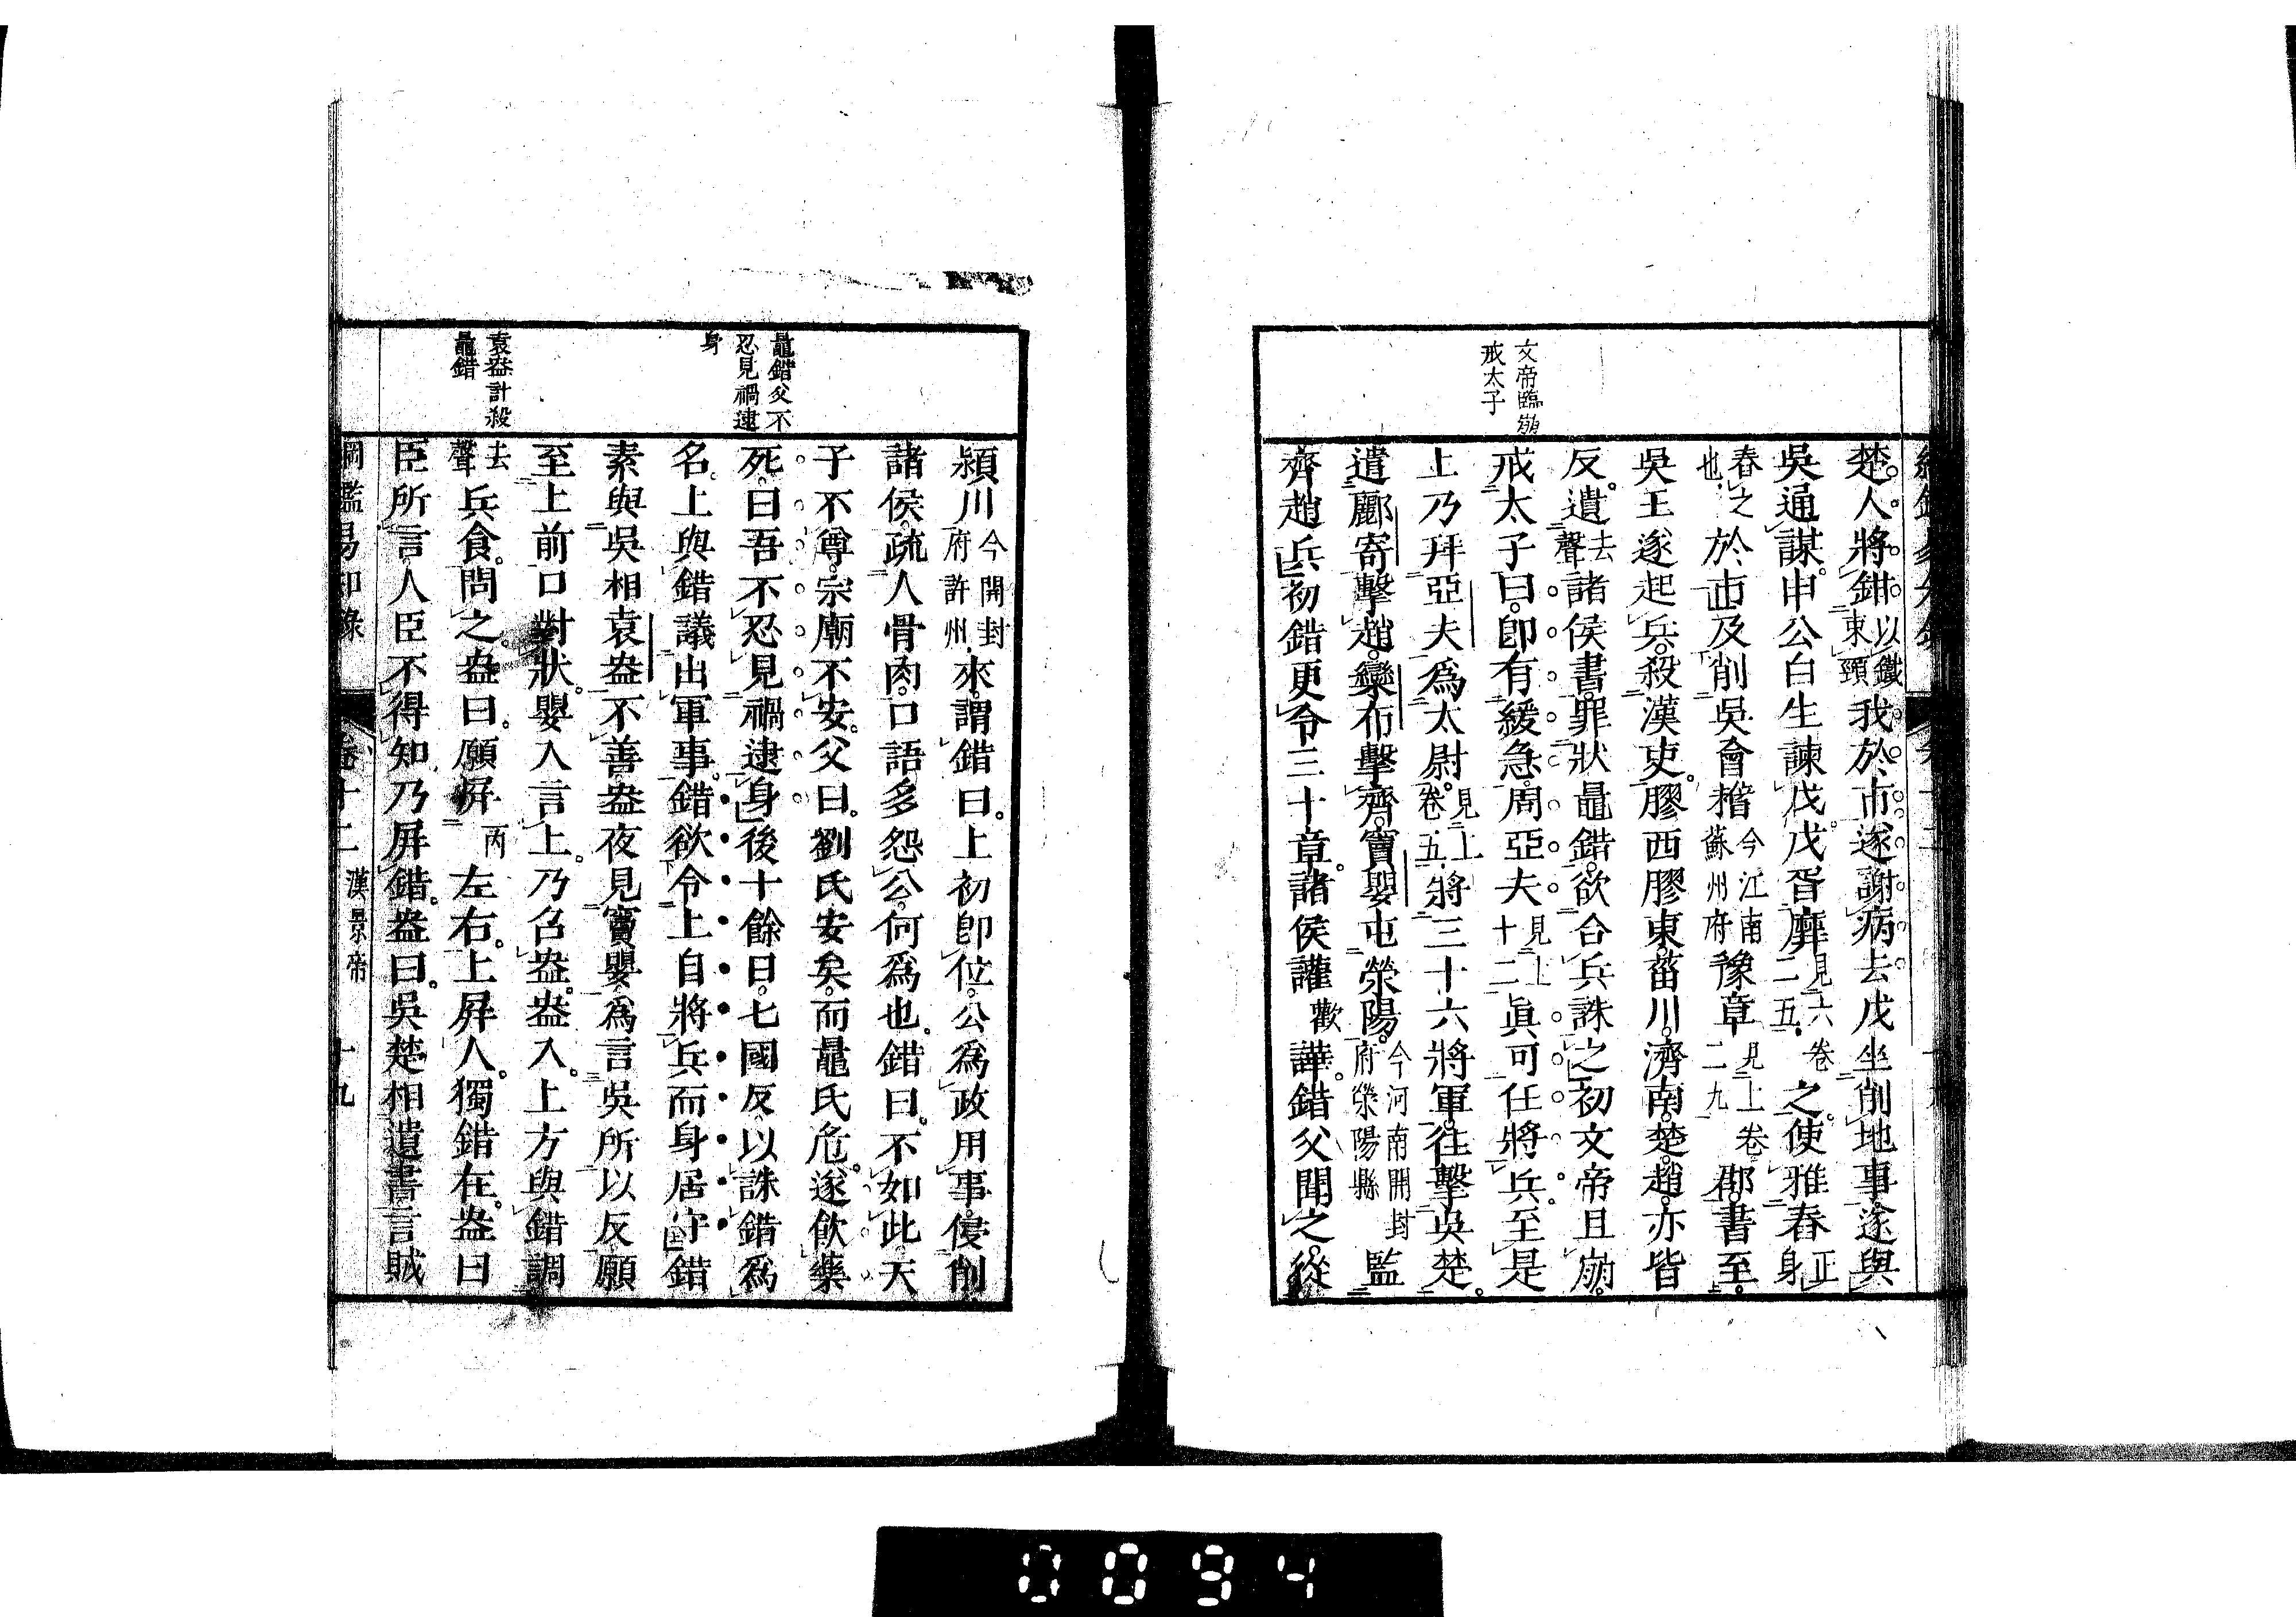 文帝臨崩
戒太子
楚人將鉗以鐵束頸我於市遂謝病去戊坐削地事遂與
吳通謀申公白生諫戊戊胥靡見六卷二五之使雅舂正身
舂之也於市及削吳會稽今江南蘇州府豫章見上卷二九郡書至
吳王遂起兵殺漢吏膠西膠東菑川濟南楚趙亦皆
反遺去聲諸侯書罪狀鼂錯欲合兵誅之初文帝且崩
戒太子曰卽有緩急周亞夫見上十二眞可任將兵至是
上乃拜亞夫爲太尉見上卷五將三十六將軍往擊吳楚
遣酈寄擊趙欒布擊齊竇嬰屯滎陽今河南開封府滎陽縣監
齊趙兵初錯更令三十章諸侯讙歡譁錯父聞之從
鼂錯父不
忍見禍逮
身
袁盎計殺
鼂錯
潁川今開封府許州來謂錯曰上初卽位公爲政用事侵削
諸侯疏人骨肉口語多怨公何爲也錯曰不如此天
子不尊宗廟不安父曰劉氏安矣而鼂氏危遂飮藥
死曰吾不忍見禍逮身後十餘日七國反以誅錯爲
名上與錯議出軍事錯欲令上自將兵而身居守錯
素與吳相袁盎不善盎夜見竇嬰爲言吳所以反願
至上前口對狀嬰入言上乃召盎盎入上方與錯調
去聲兵食問之盎曰願屛丙左右上屛人獨錯在盎曰
臣所言人臣不得知乃屛錯盎曰吳楚相遺書言賊
綱鑑易知錄 卷十二 漢景帝 十九